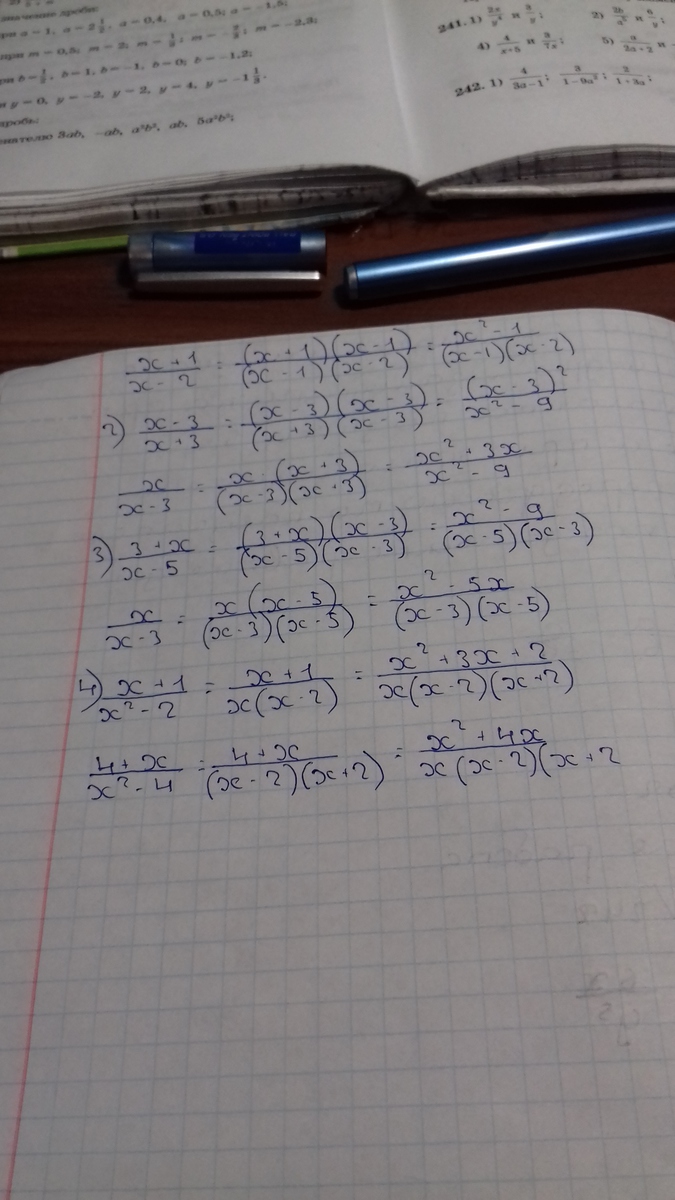 значение дроби:
при a = 1, a = 2 1/2, a = 0,4, a = 0,5; a = -1,5;
при m = 0,5; m = 2; m = 1/3; m = -2,3;
b = 1/2, b = 1, b = -1, b = 0; b = -1,2;
y = 0, y = -2, y = 2, y = 4, y = -1 1/3.
дробь:
3ab, -ab, a²b², ab,
241. 1) и 3/y; 2)
4) 4/(x+5) и 3/(7x); 5)
242. 1) 4/(3a-1); 3/(1-9a²); 2/(1+3a);
(x+1)/(x-2) = ((x+1)(x-1))/((x-1)(x-2)) = (x²-1)/((x-1)(x-2))
2) (x-3)/(x+3) = ((x-3)(x-3))/((x+3)(x-3)) = (x-3)²/(x²-9)
x/(x-3) = (x·(x+3))/((x-3)(x+3)) = (x²+3x)/(x²-9)
3) (3+x)/(x-5) = ((3+x)(x-3))/((x-5)(x-3)) = (x²-9)/((x-5)(x-3))
x/(x-3) = (x(x-5))/((x-3)(x-5)) = (x²-5x)/((x-3)(x-5))
4) (x+1)/(x²-2) = (x+1)/(x(x-2)) = (x²+3x+2)/(x(x-2)(x+2))
(4+x)/(x²-4) = (4+x)/((x-2)(x+2)) = (x²+4x)/(x(x-2)(x+2